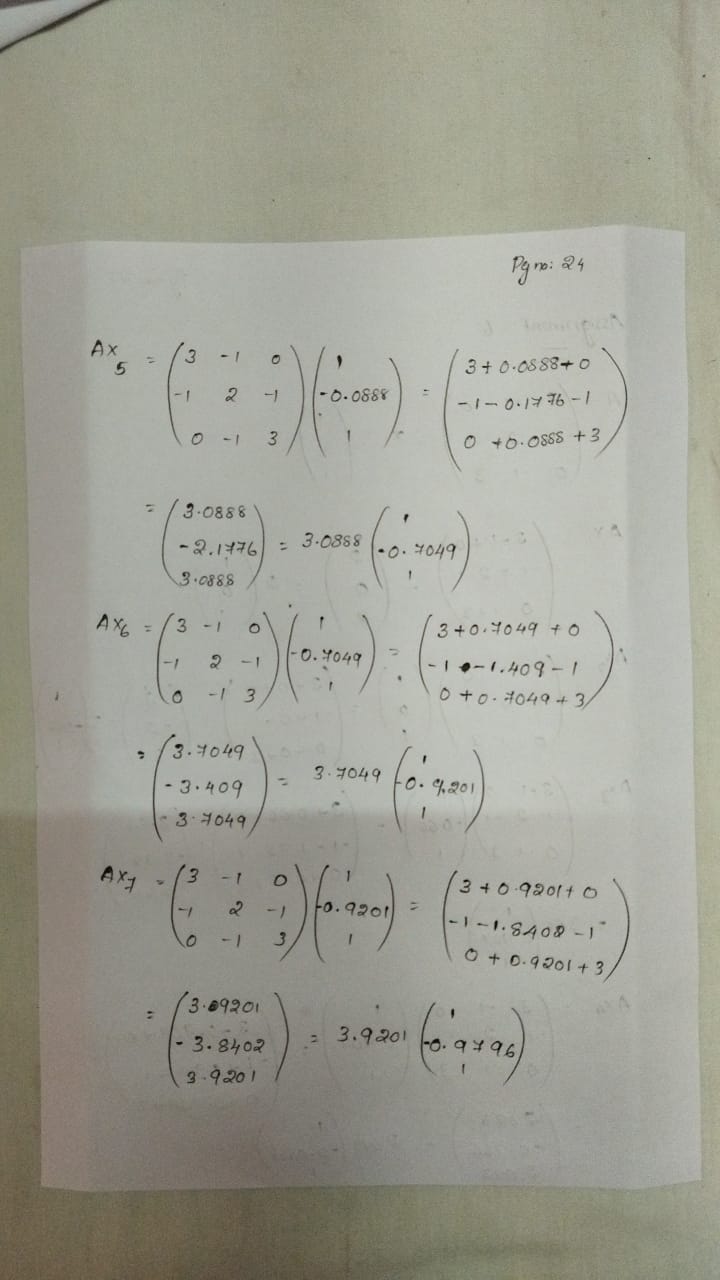 Pg no: 24
AX5 = (3 -1 0; -1 2 -1; 0 -1 3) (1; -0.0888; 1) = (3+0.0888+0; -1-0.1776-1; 0+0.0888+3)
= (3.0888; -2.1776; 3.0888) = 3.0888 (1; -0.7049; 1)
AX6 = (3 -1 0; -1 2 -1; 0 -1 3) (1; -0.7049; 1) = (3+0.7049+0; -1-1.409-1; 0+0.7049+3)
= (3.7049; -3.409; 3.7049) = 3.7049 (1; -0.9201; 1)
AX7 = (3 -1 0; -1 2 -1; 0 -1 3) (1; -0.9201; 1) = (3+0.9201+0; -1-1.8402-1; 0+0.9201+3)
= (3.09201; -3.8402; 3.9201) = 3.9201 (1; -0.9796; 1)